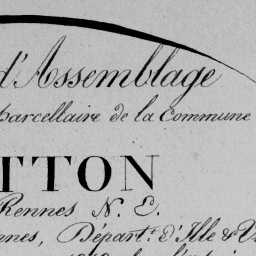 d'Assemblage
parcellaire de la Commune
TTON
Rennes N. E.
nnes, Départ.t d'Ille & V